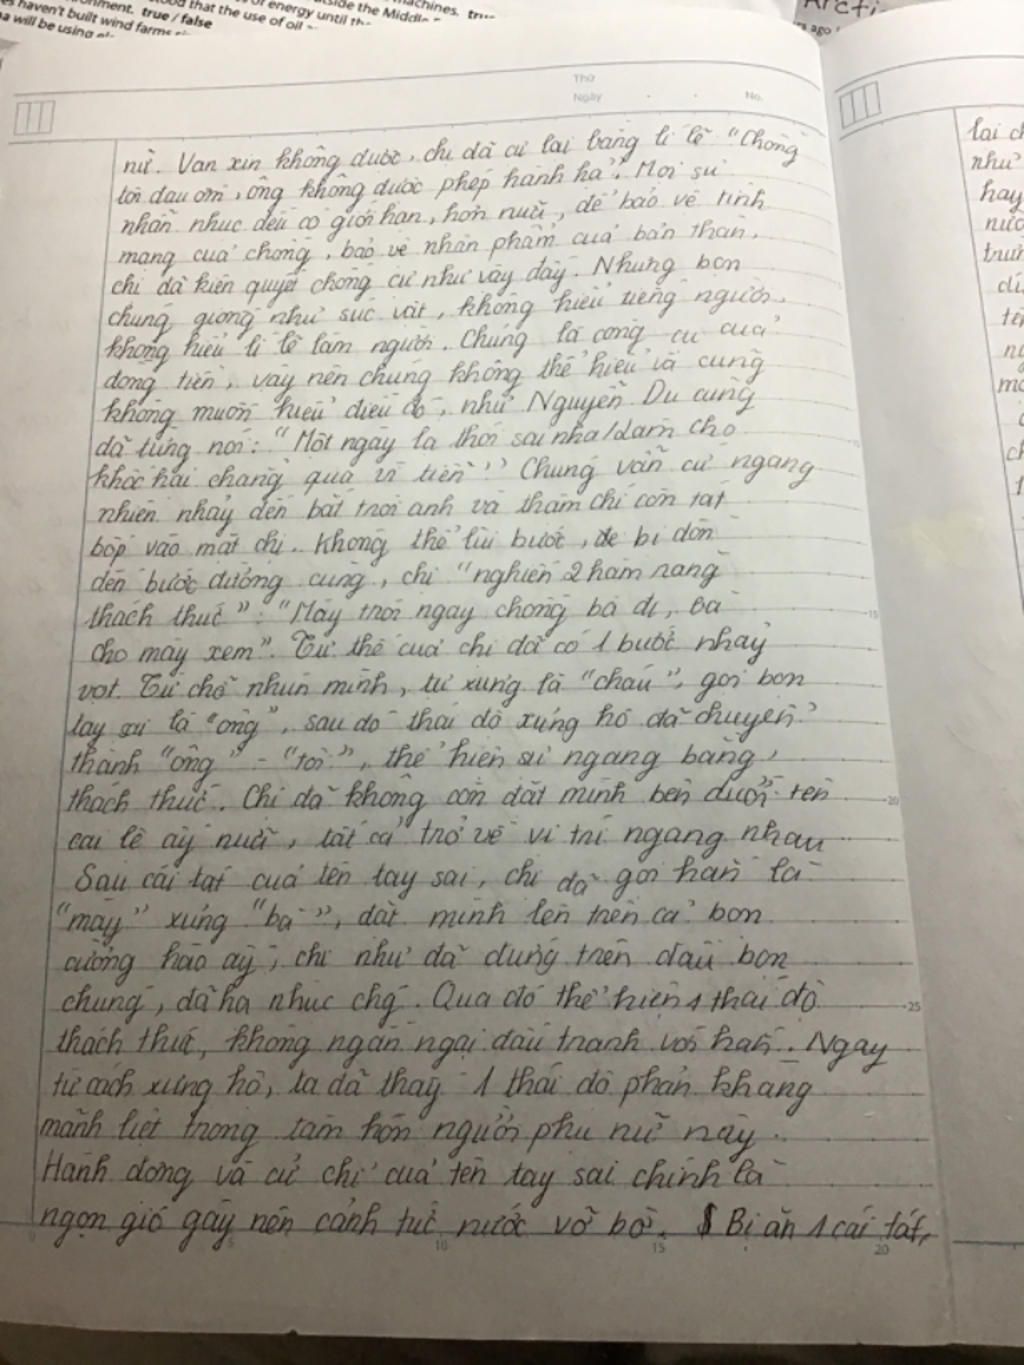 achines. tru
side the Middle
of energy until th
od that the use of oil
onment. true / false
es haven't built wind farms
a will be using
Arcti
s ago
Thứ
Ngày
No.
nữ. Van xin không được, chị đã cự lại bằng lí lẽ "Chồng
tôi đau ốm, ông không được phép hành hạ". Mọi sự
nhẫn nhục đều có giới hạn, hơn nữa, để bảo vệ tính
mạng của chồng, bảo vệ nhân phẩm của bản thân,
chị đã kiên quyết chống cự như vậy đấy. Nhưng bọn
chúng giống như súc vật, không hiểu tiếng người,
không hiểu lí lẽ làm người. Chúng là công cụ của
đồng tiền, vậy nên chúng không thể hiểu và cũng
không muốn hiểu điều đó, như Nguyễn Du cũng
đã từng nói: "Một ngày lạ thói sai nha/Làm cho
khốc hại chẳng qua vì tiền" Chúng vẫn cứ ngang
nhiên nhảy đến bắt trói anh và thậm chí còn tát
bốp vào mặt chị. Không thể lùi bước, bị dồn
đến bước đường cùng, chị "nghiến 2 hàm răng
thách thức": "Mày trói ngay chồng bà đi, bà
cho mày xem". Tư thế của chị đã có 1 bước nhảy
vọt. Từ chỗ nhún mình, tự xưng là "cháu", gọi bọn
tay sai là "ông", sau đó thái độ xưng hô đã chuyển
thành "ông" - "tôi", thể hiện sự ngang bằng,
thách thức. Chị đã không còn đặt mình bên dưới tên
cai lệ ấy nữa, tất cả trở về vị trí ngang nhau
Sau cái tát của tên tay sai, chị đã gọi hắn là
"mày" xưng "bà", đặt mình lên trên cả bọn
cường hào ấy, chị như đã đứng trên đầu bọn
chúng, đã hạ nhục chg. Qua đó thể hiện 1 thái độ
thách thức, không ngần ngại đấu tranh với hắn. Ngay
từ cách xưng hô, ta đã thấy 1 thái độ phản kháng
mãnh liệt trong tâm hồn người phụ nữ này.
Hành động và cử chỉ của tên tay sai chính là
ngọn gió gây nên cảnh tức nước vỡ bờ. Bị ăn 1 cái tát,
15
20
25
5
10
15
20
lại
như
hay
nước